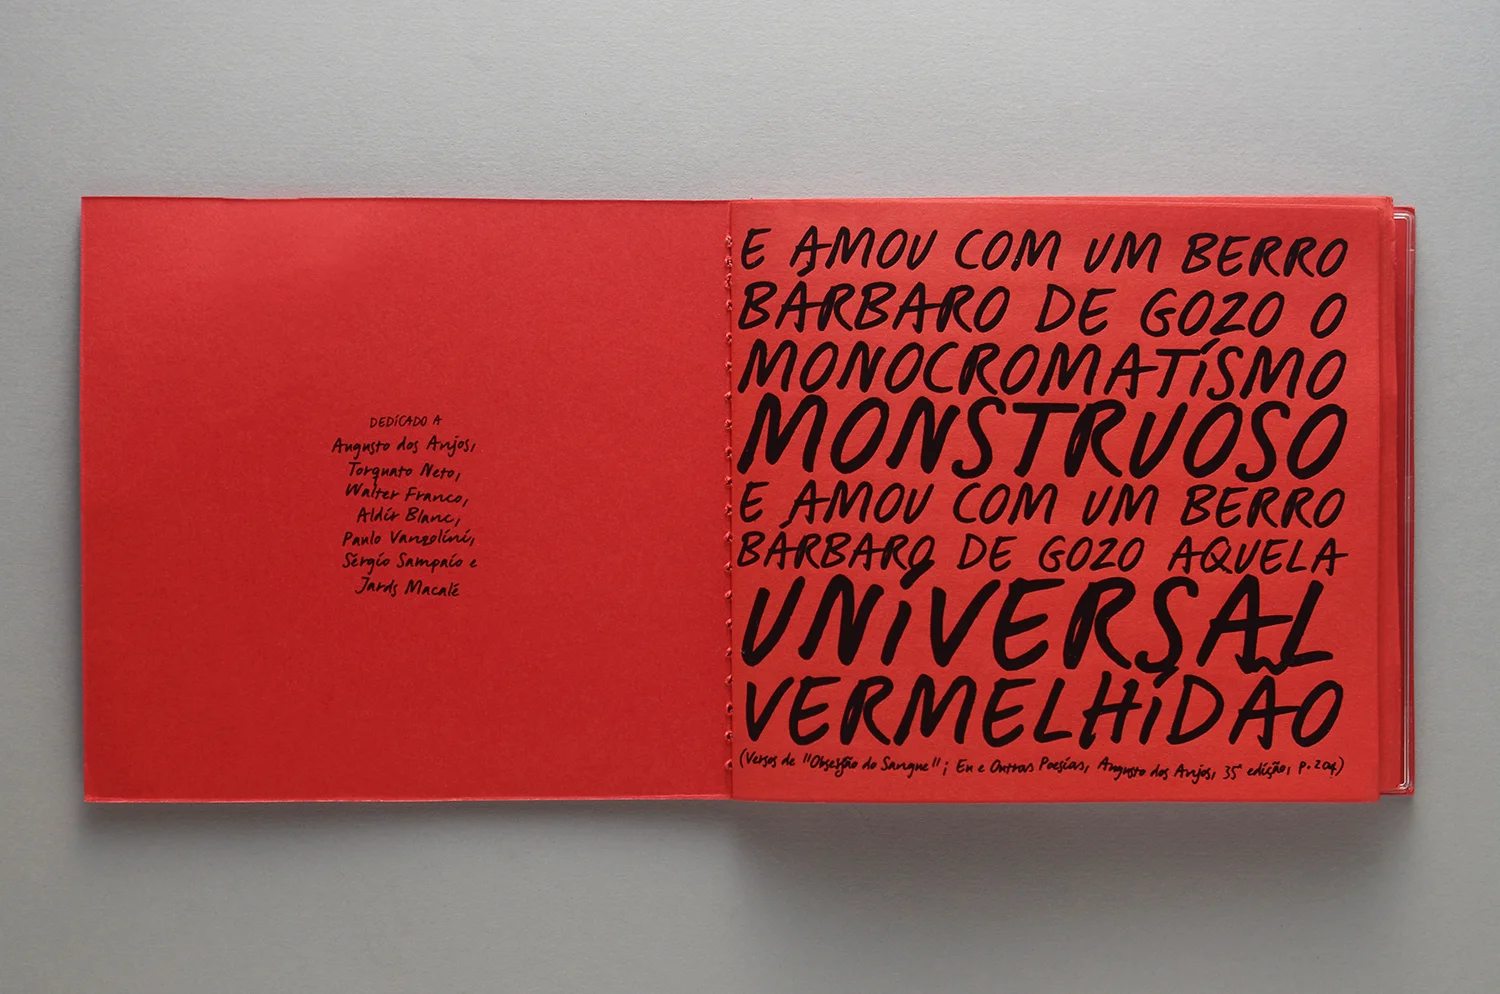 DEDICADO A
Augusto dos Anjos,
Torquato Neto,
Walter Franco,
Aldir Blanc,
Paulo Vanzolini,
Sérgio Sampaio e
Jards Macalé
E AMOU COM UM BERRO
BÁRBARO DE GOZO O
MONOCROMATISMO
MONSTRUOSO
E AMOU COM UM BERRO
BÁRBARO DE GOZO AQUELA
UNIVERSAL
VERMELHIDÃO
(Versos de "Obsessão do Sangue"; Eu e Outras Poesias, Augusto dos Anjos, 35ª edição, p. 204)